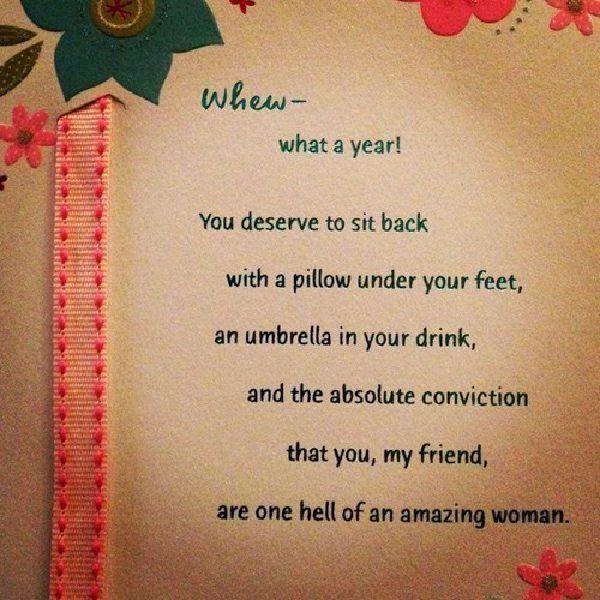 Whew–
what a year!
You deserve to sit back
with a pillow under your feet,
an umbrella in your drink,
and the absolute conviction
that you, my friend,
are one hell of an amazing woman.